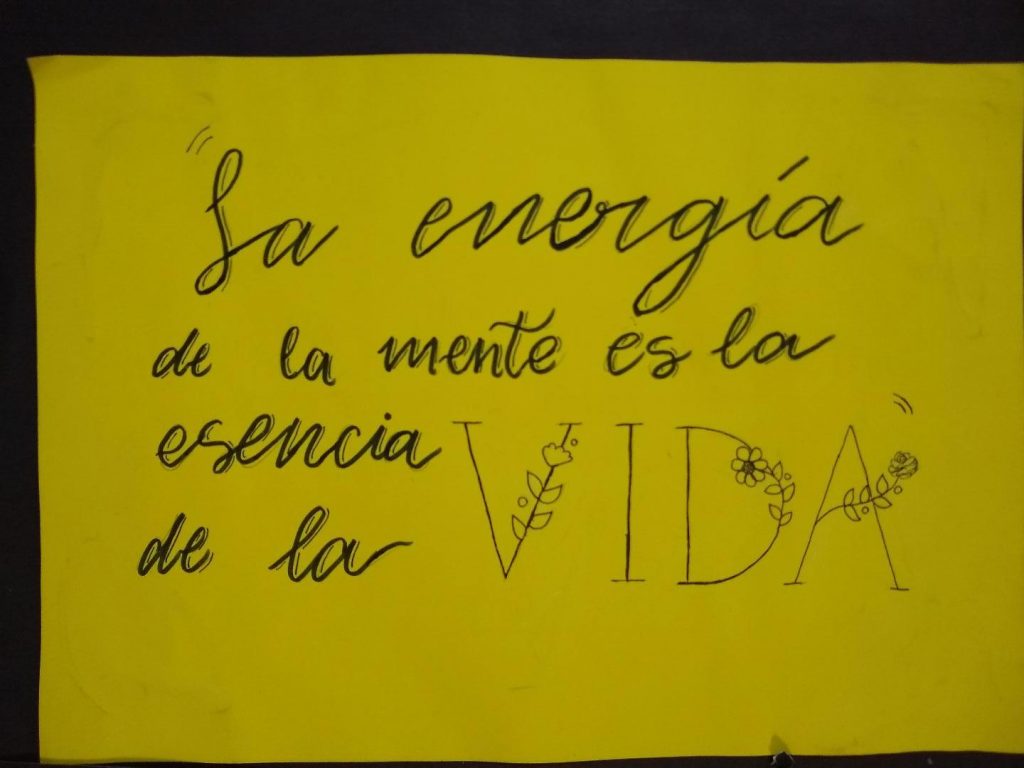 "La energía
de la mente es la
esencia
de la VIDA"